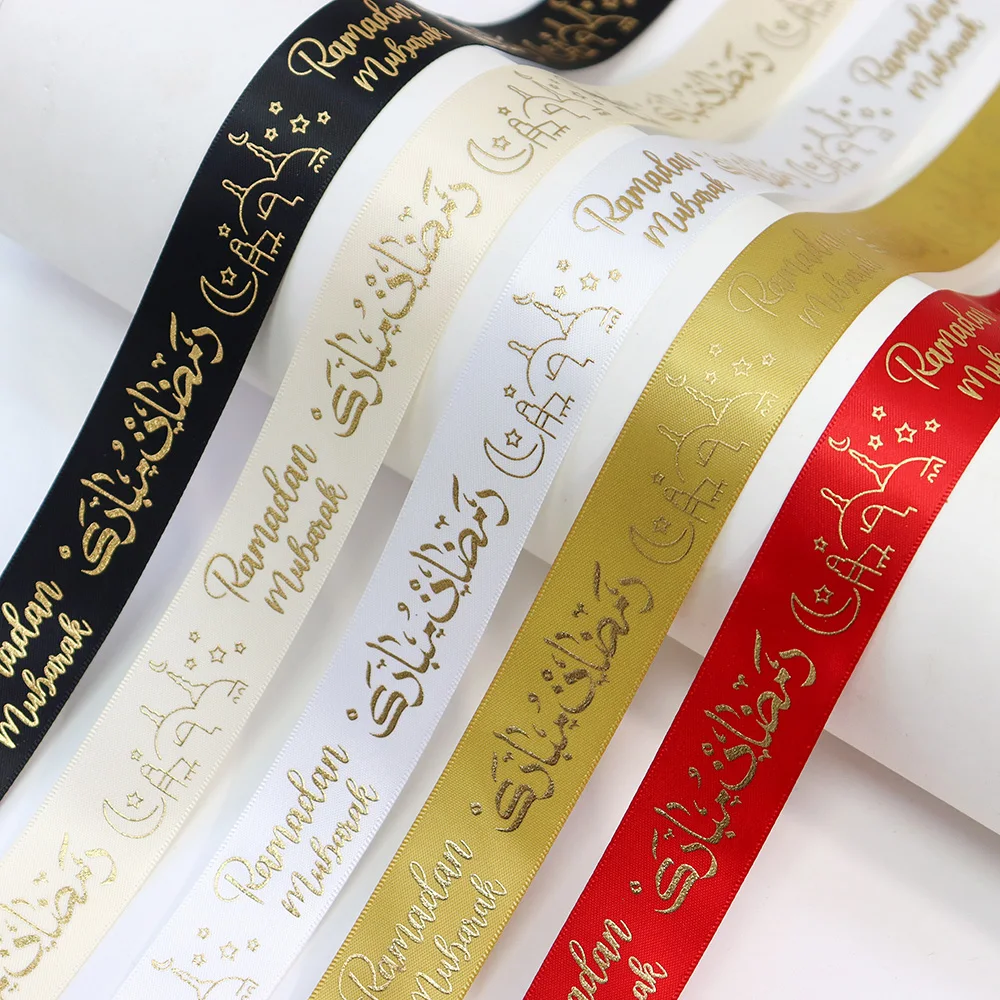 Ramadan
Mubarak
رمضان مبارك
Ramadan
Mubarak
رمضان مبارك
رمضان مبارك
Ramadan
Mubarak
رمضان مبارك
Ramadan
Mubarak
Ramadan
Mubarak
رمضان مبارك
Ramadan
Mubarak
Ramadan
Mubarak
رمضان مبارك
Ramadan
Mubarak
Ramadan
رمضان مبارك
Ramadan